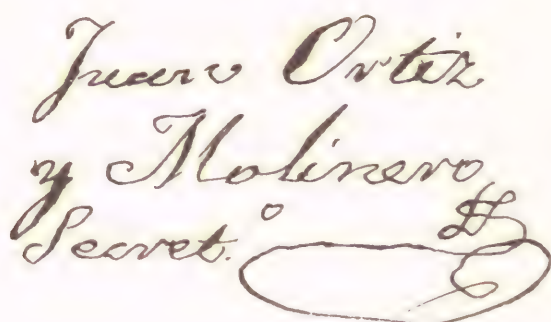 Juan Ortiz
y Molinero
Secret.º